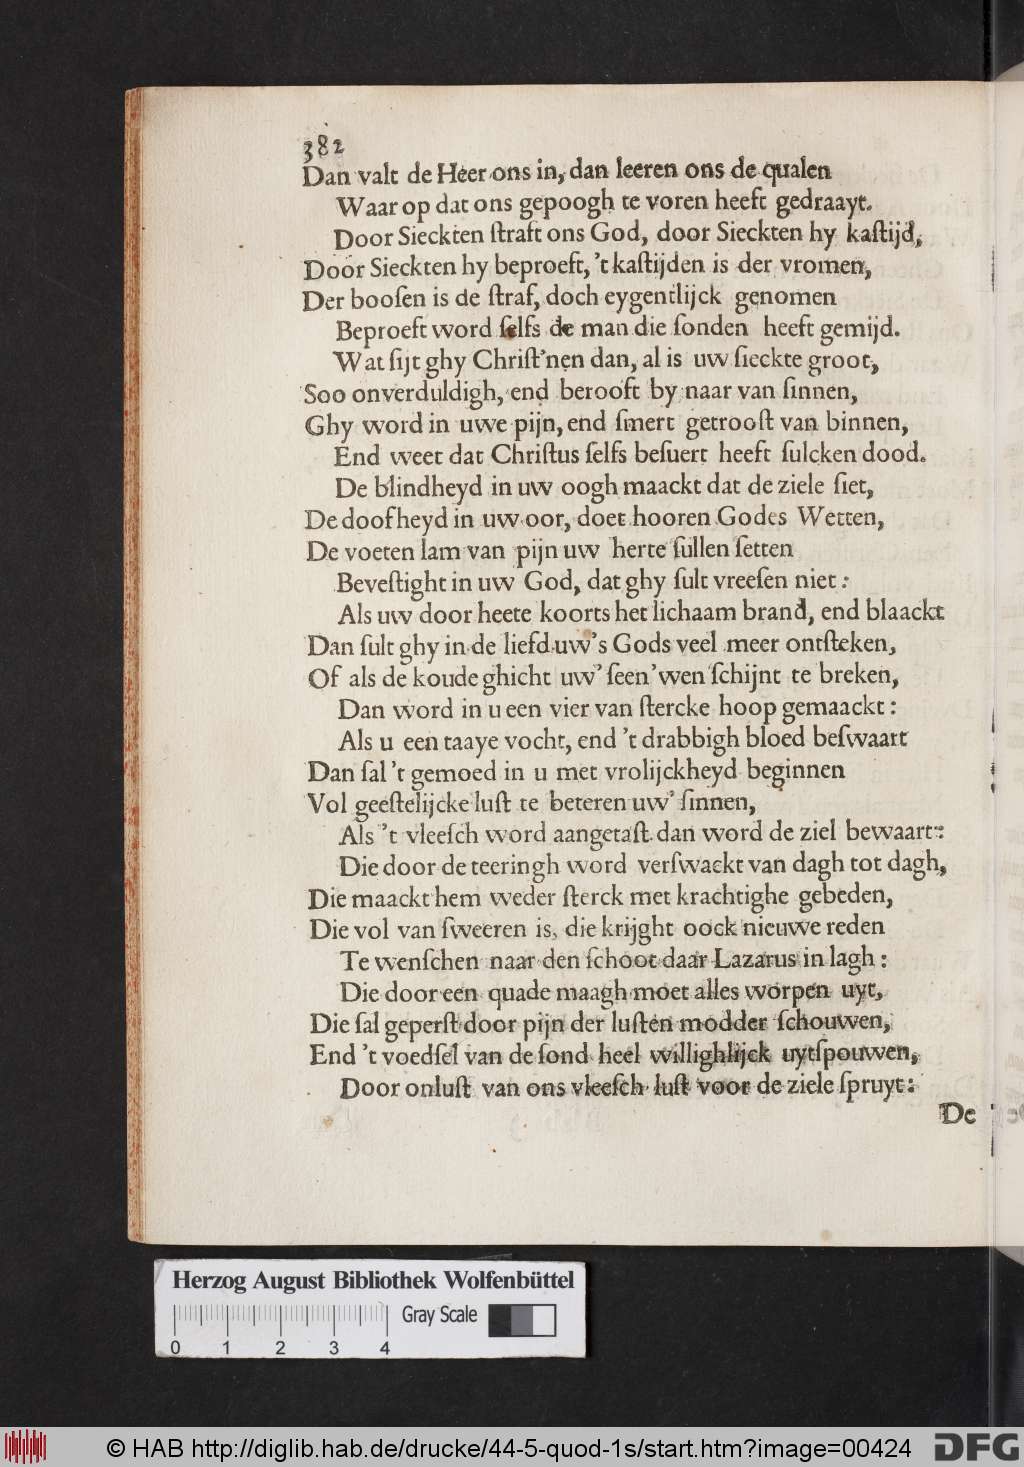 382
Dan valt de Heer ons in, dan leeren ons de qualen
Waar op dat ons gepoogh te voren heeft gedraayt.
Door Sieckten ſtraft ons God, door Sieckten hy kaſtijd,
Door Sieckten hy beproeft, 't kaſtijden is der vromen,
Der booſen is de ſtraf, doch eygentlijck genomen
Beproeft word ſelfs de man die ſonden heeft gemijd.
Wat ſijt ghy Chriſt'nen dan, al is uw ſieckte groot,
Soo onverduldigh, end berooft by naar van ſinnen,
Ghy word in uwe pijn, end ſmert getrooſt van binnen,
End weet dat Chriſtus ſelfs beſuert heeft ſulcken dood.
De blindheyd in uw oogh maackt dat de ziele ſiet,
De doofheyd in uw oor, doet hooren Godes Wetten,
De voeten lam van pijn uw herte ſullen ſetten
Beveſtight in uw God, dat ghy ſult vreeſen niet:
Als uw door heete koorts het lichaam brand, end blaackt
Dan ſult ghy in de liefd uw's Gods veel meer ontſteken,
Of als de koude ghicht uw' ſeen'wen ſchijnt te breken,
Dan word in u een vier van ſtercke hoop gemaackt:
Als u een taaye vocht, end 't drabbigh bloed beſwaart
Dan ſal 't gemoed in u met vrolijckheyd beginnen
Vol geeſtelijcke luſt te beteren uw' ſinnen,
Als 't vleeſch word aangetaſt dan word de ziel bewaart:
Die door de teeringh word verſwackt van dagh tot dagh,
Die maackt hem weder ſterck met krachtighe gebeden,
Die vol van ſweeren is, die krijght oock nieuwe reden
Te wenſchen naar den ſchoot daar Lazarus in lagh:
Die door een quade maagh moet alles worpen uyt,
Die ſal geperſt door pijn der luſten modder ſchouwen,
End 't voedſel van de ſond heel willighlijck uytſpouwen,
Door onluſt van ons vleeſch luſt voor de ziele ſpruyt:
De
Herzog August Bibliothek Wolfenbüttel
Gray Scale
0 1 2 3 4
© HAB http://diglib.hab.de/drucke/44-5-quod-1s/start.htm?image=00424
DFG